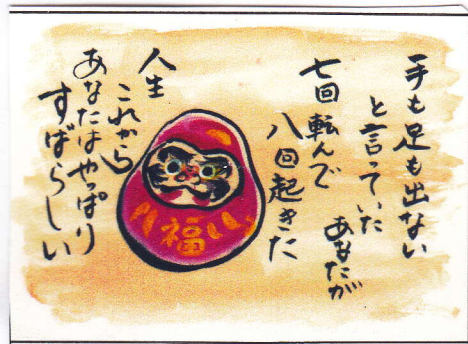 手も足も出ない
と言っていた
あなたが
七回転んで
八回起きた
人生
これから
あなたはやっぱり
すばらしい
福